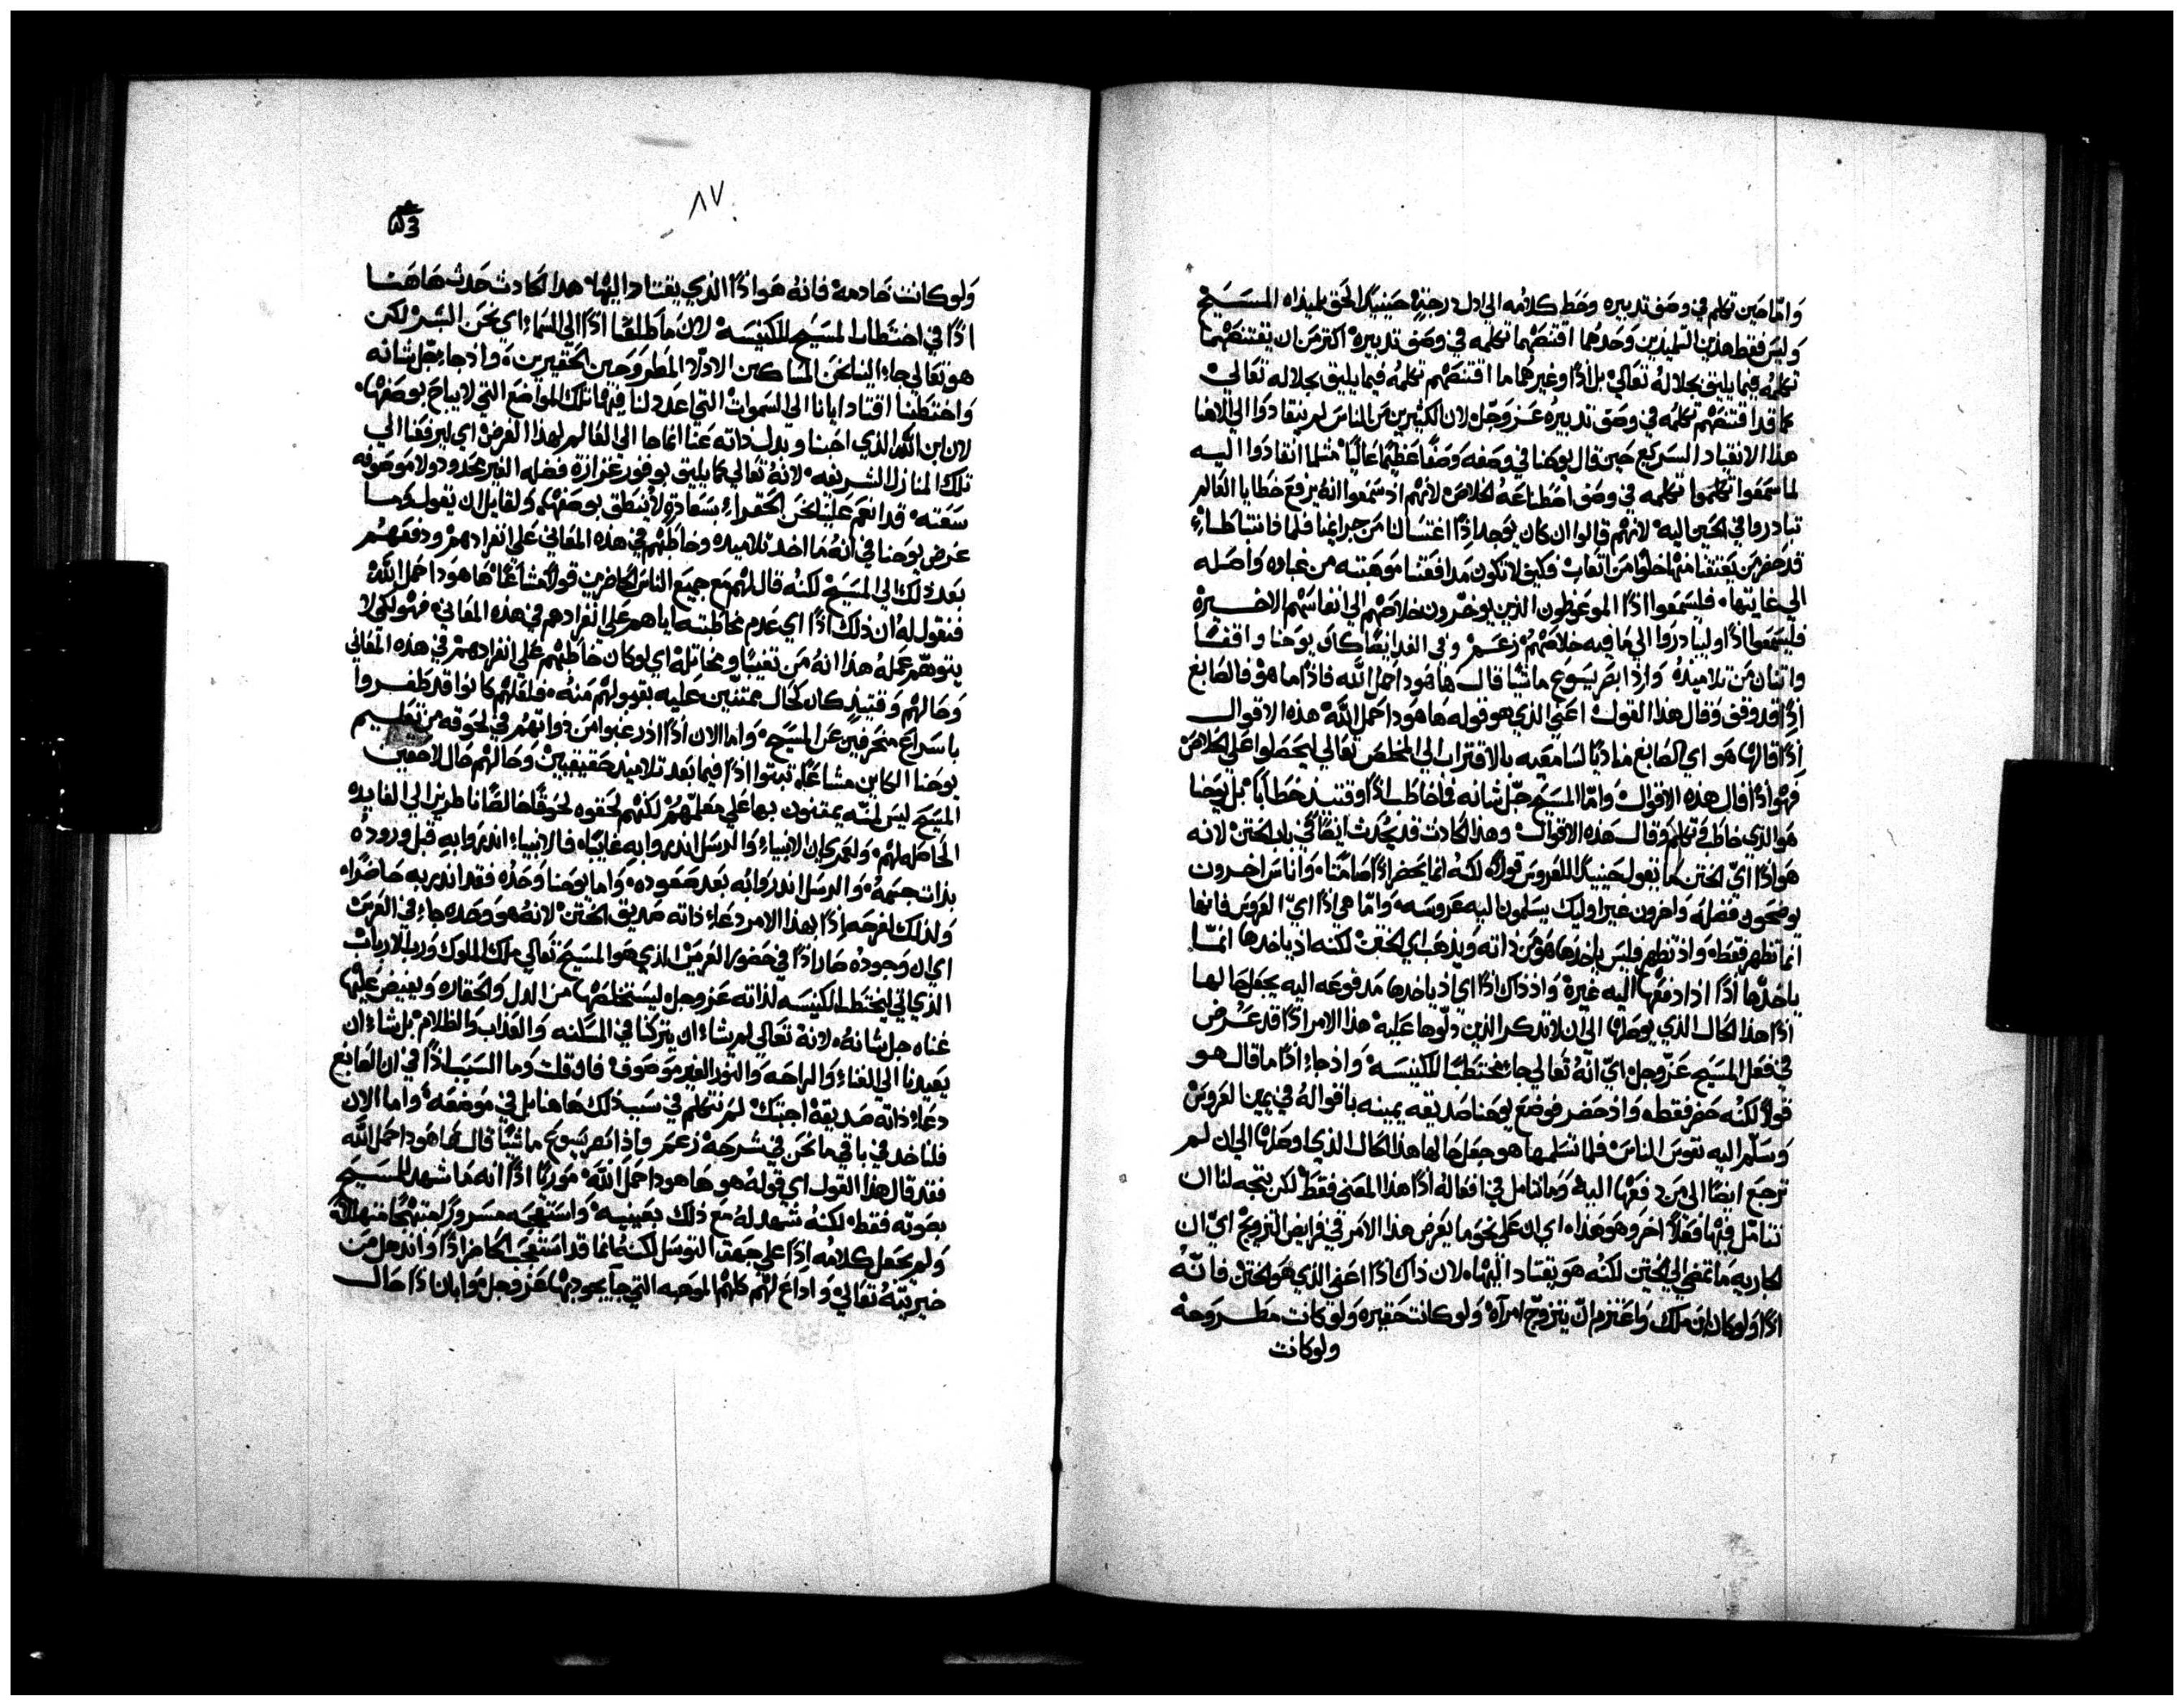 واما حين تكلم في وصف تدبيره وحط كلامه الي ادل درجة حينيد الحق تلميداه المسيح
وليس فقط هدين التلميدين وحدهما اقتنصهما تكلمه في وصف تدبيره اكتر من ان يقتنصهما
تكلمه فيما يليق بجلاله تعالي بل اذًا وغيرهما ما اقتنصهم تكلمه فيما يليق بجلاله تعالي
كما قد اقتنصهم تكلمه في وصف تدبيره عز وجل لان الكثيرين من الناس لم ينقادوا الي الاهنا
هدا الانقياد السريع حين قال يوحنا في وصفه وصفًا عظيمًا عاليًا متلما انقادوا اليه
لما سمعوا تكلمه في وصف اصطناعه الخلاص لانهم اد سمعوا انه يرفع خطايا العالم
تبادروا في الحين اليه لانهم قالوا ان كان يوجد اذًا اغتسالنا من جرايمنا فلما دا نتباطاء
قد حضر من يعتقنا منها خلوًا من اتعاب فكيف لا تكون مدافعتنا موهبته من غباوه واصله
الي غايتها فليسمعوا اذًا الموعوظون الذين يوخرون خلاصهم الي انفاسهم الاخيرة
فليسمعوا اذًا وليبادروا الي ما فيه خلاصهم زعم وفي الغد ايضًا كان يوحنا واقفًا
واتنان من تلاميذه واذا بصر يسوع ماشيًا قال ها هودا حمل الله فاذًا ما هو فالصابغ
اذًا قد وقف وقال هدا القول اعني الذي هو قوله ها هودا حمل الله هذه الاقوال
اذًا قالها هو اي الصابغ مناديًا لسامعيه بالاقتراب الي المخلص تعالي ليحصلوا علي الخلاص
فهو اذًا قال هده الاقوال واما المسيح جل شانه فما خاطب اذًا وقتيد خطابًا بل يوحنا
هو الدي خاطب وتكلم وقال هده الاقوال وهدا الحادت قد يحدت ايضًا في باب الختن لانه
هو اذًا اي الختن ما يقول حينيد للعروس قولاً لكنه انما يحضر اذًا صامتًا واناس اخرون
يوضحون فضله واخرون غير اوليك يسلمون اليه عروسه واما هي اذًا اي العروس فانها
انما تظهر فقط واد تظهر فليس ياخدها هو من داته ويدهب اي الختن لكنه اد ياخدها انما
ياخدها اذًا اد ادفعها اليه غيره واد داك اذًا اي اد ياخدها مدفوعه اليه يجعل حالها
اذًا هدا الحال الدي يوصلها الي ان لا تدكر الذين دلوها عليه هدا الامر اذًا قد عرض
في فعل المسيح عز وجل اي انه تعالي جاء مختطبًا للكنيسه واد جاء اذًا ما قال هو
قولاً لكنه حضر فقط واد حضر فوضع يوحنا صديقه يمينه باقواله في يمين العروس
وسلم اليه نفوس الناس فلما تسلمها هو جعل حالها هدا الحال الدي اوصلها الي ان لم
ترجع ايضًا الي من دفعها اليه وما نتامل في افعاله اذًا هدا المعني فقط لكن يتجه لنا ان
نتامل فيها فعلاً اخر وهو هدا اي ان علي نحو ما يعرض هدا الامر في فرايض التزويج اي ان
الجاريه ما تمضي الي الختن لكنه هو يقتاد اليها لان داك اذًا اعني الدي هو الختن فانه
اذًا ولو كان ابن ملك واعتزم ان يتزوج امراه ولو كانت حقيره ولو كانت مطروحه
ولو كانت
٨٧
ولو كانت خادمة فانه هو اذًا الذي يقتاد اليها هدا الحادث حدث هاهنا
اذًا في اختطاب المسيح للكنيسة لان ما طلعنا اذًا الي السماء اي نحن البشر لكن
هو تعالي جاء الينا نحن المساكين الادلا المطروحين الحقيرين واد جاء جل شانه
واختطبنا اقتاد ايانا الي السموات التي اعد لنا فيها تلك المواضع التي لا يباح بوصفها
لان ابن الله الذي احبنا وبدل داته عنا انما جا الي العالم لهدا الغرض اي ليرفعنا الي
تلك المنازل الشريفه لانه تعالي كما يليق بوفور غزارة فضله الغير محدود ولا موصوفه
سعته قد انعم علينا نحن الحقراء بسعادة لا ينطق بوصفها ولقايل ان يقول فما
غرض يوحنا في انه ما اخد تلاميده وخاطبهم في هده المعاني علي انفرادهم ودفعهم
بعد دلك الي المسيح لكنه قال لهم مع جميع الناس الحاضرين قولاً مشاعًا ها هودا حمل الله
فنقول له ان دلك اذًا اي عدم مخاطبته اياهم علي انفرادهم في هده المعاني فهو لكي لا
يتوهم عمله هدا انه من تغيبًا ومخاتلة اي لو كان خاطبهم علي انفرادهم في هده المعاني
وحالهم وقتيد كان كحال ممتنين عليه بقبولهم منه فلعلهم كانوا قد طفروا
باسراع منحرفين عن المسيح واما الان اذًا اذ رغبوا من ذواتهم في لحوقه من تعليم
يوحنا الكاين مشاعًا تبتوا اذًا فيما بعد تلاميذ حقيقيين وحالهم حال لاحقين
المسيح ليس لمنه يمتنون بها علي معلمهم لكنهم لحقوه لحوقًا خالصًا ناظرين الي الفايده
الحاصله لهم ولعمري ان الانبياء والرسل اندروا به غايبًا فالانبياء اندروا به قبل وروده
بدات جسمه والرسل اندروا به بعد صعوده واما يوحنا وحده فقد اندر به حاضرًا
ولدلك لفرحه اذًا بهدا الامر دعاء داته صديق الختن لانه هو وحده جاء في العرس
اي ان وجوده صار اذًا في حضور العرس الدي هو المسيح تعالي ملك الملوك ورب الارباب
الذي اتي ليختطب الكنيسه لذاته عز وجل ليستخلصها من الدل والحقاره ويفيض عليها
غناه جل شانه لانه تعالي لم يشاء ان يتركنا في المسكنه والعداب والظلام بل شاء ان
يعيدنا الي الغناء والراحه والنور الغير موصوف فان قلت وما السبب اذًا في ان الصابغ
دعاء داته صديقه اجبتك لم نتكلم في سبب دلك هاهنا بل في موضعه واما الان
فلناخد في باقي ما نحن في شرحه زعم واذا بصر يسوع ماشيًا قال ها هودا حمل الله
فقد قال هدا القول اي قوله هو ها هودا حمل الله موريًا اذًا انه ما شهد للمسيح
بصوته فقط لكنه شهد له مع دلك بعينيه واستعجبه مسرورًا مبتهجًا
ولم يجعل كلامه اذًا علي جهة التوسل لكنه انما قد استعجب الحاضر اذًا واندهل من
خيريته تعالي واداع لهم كلهم الموهبه التي جاء يجود بها عز وجل موابان اذًا حال